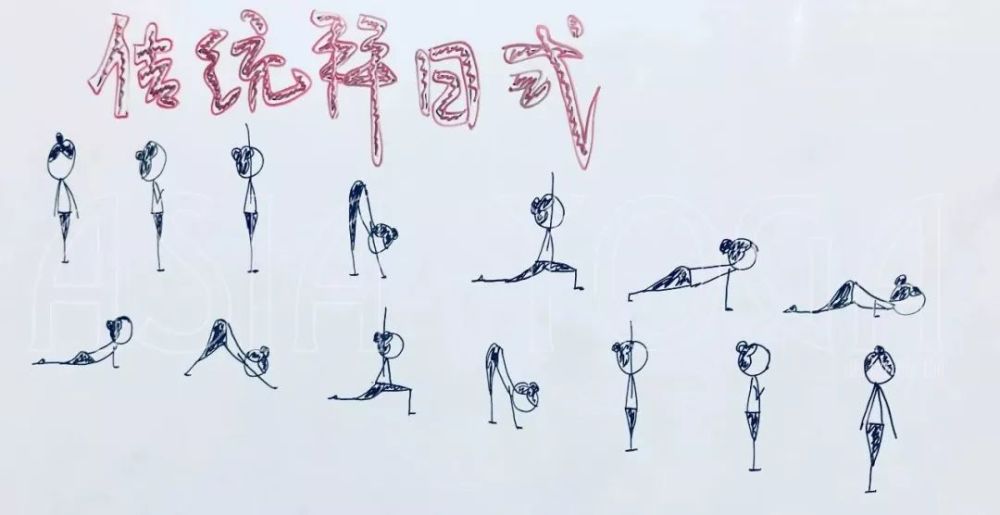 传统拜日式
ASIA YOGA